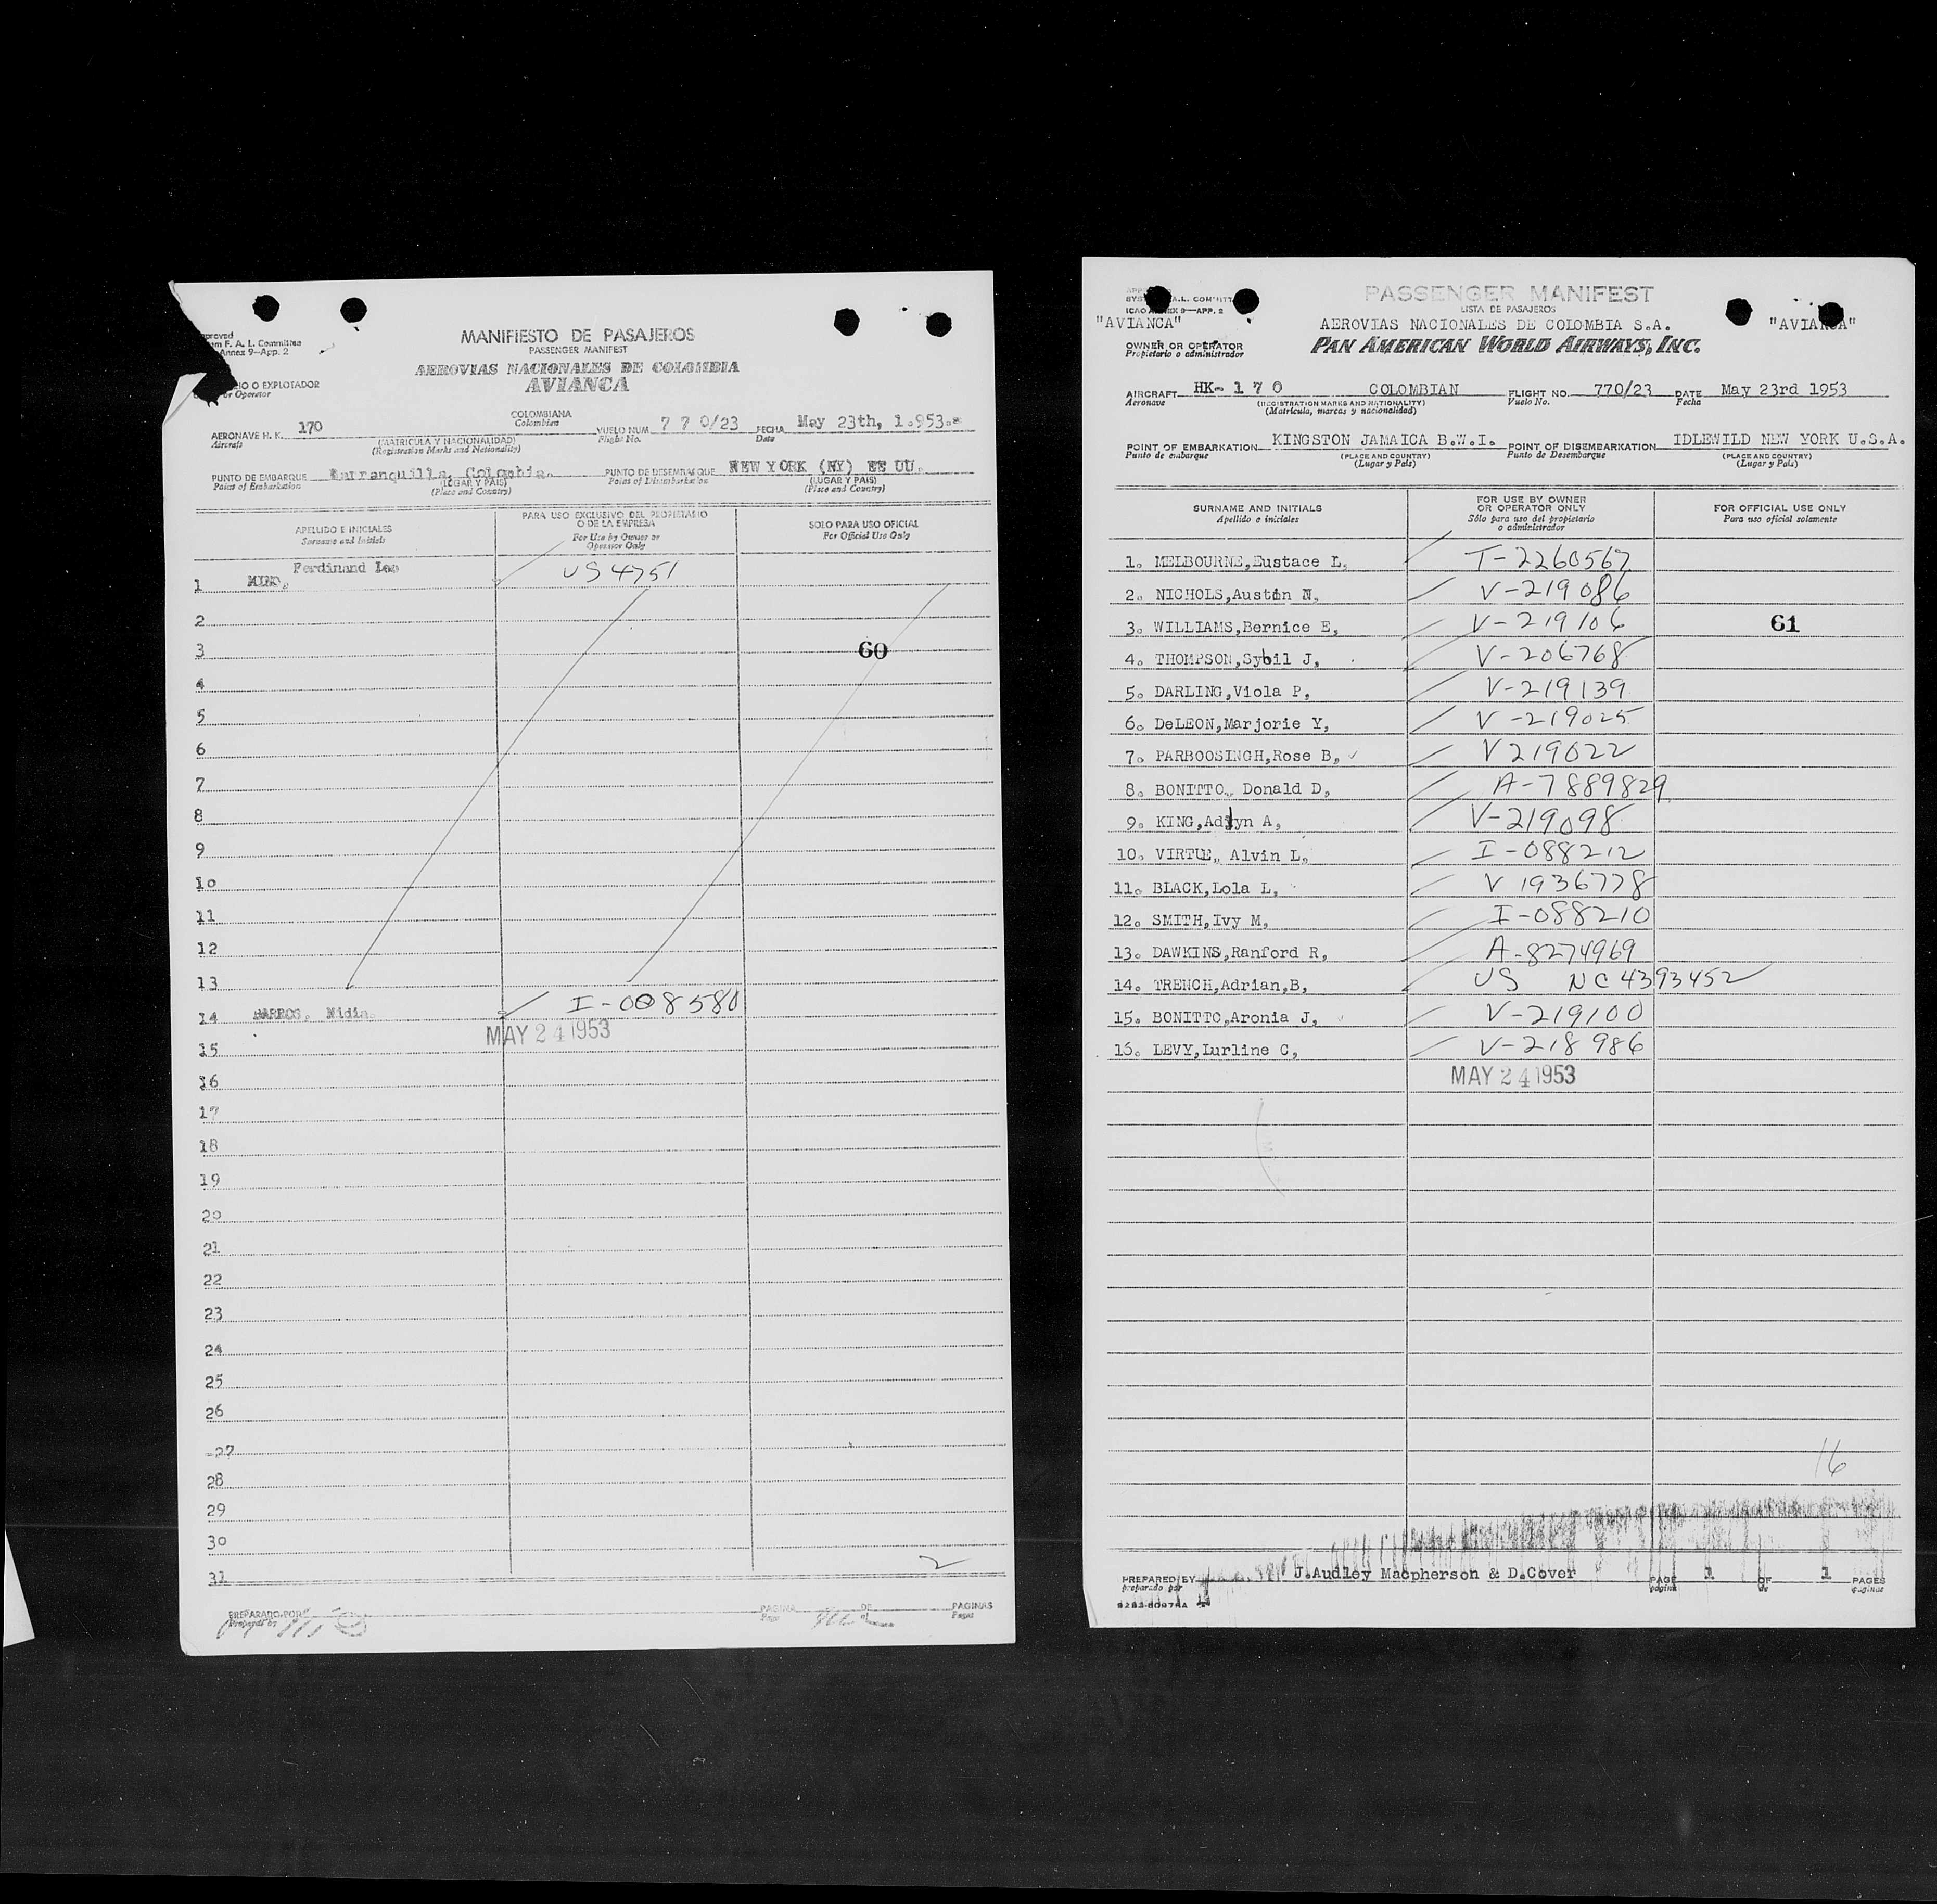 MANIFIESTO DE PASAJEROS
PASSENGER MANIFEST
F. A. L. Committee
Annex 9—App. 2
AEROVIAS NACIONALES DE COLOMBIA
AVIANCA
O EXPLOTADOR
or Operator
COLOMBIANA
Colombian
AERONAVE H. K. 170 VUELO NUM 7 7 0/23 FECHA May 23th, 1.953.-
Aircraft (MATRICULA Y NACIONALIDAD) Flight No. Date
(Registration Marks and Nationality)
PUNTO DE EMBARQUE Barranquilla, Colombia. PUNTO DE DESEMBARQUE NEW YORK (NY) EE UU.
Point of Embarkation (LUGAR Y PAIS) Point of Disembarkation (LUGAR Y PAIS)
(Place and Country) (Place and Country)
APELLIDO E INICIALES PARA USO EXCLUSIVO DEL PROPIETARIO O DE LA EMPRESA SOLO PARA USO OFICIAL
Surname and Initials For Use by Owner or Operator Only For Official Use Only
1 Ferdinand US 4751
2
3 60
4
5
6
7
8
9
10
11
12
13
14 BARROS, Nidia I-008580
MAY 24 1953
15
16
17
18
19
20
21
22
23
24
25
26
27
28
29
30
31 2
PREPARADO POR PAGINA DE PAGINAS
Prepared by Page of Pages
PASSENGER MANIFEST
LISTA DE PASAJEROS
A.L. COMMITT
ICAO ANNEX 9—APP. 2
"AVIANCA" AEROVIAS NACIONALES DE COLOMBIA S.A. "AVIANCA"
OWNER OR OPERATOR PAN AMERICAN WORLD AIRWAYS, INC.
Propietario o administrador
AIRCRAFT HK-170 COLOMBIAN FLIGHT NO. 770/23 DATE May 23rd 1953
Aeronave (REGISTRATION MARKS AND NATIONALITY) Vuelo No. Fecha
(Matrícula, marcas y nacionalidad)
POINT OF EMBARKATION KINGSTON JAMAICA B.W.I. POINT OF DISEMBARKATION IDLEWILD NEW YORK U.S.A.
Punto de embarque (PLACE AND COUNTRY) Punto de Desembarque (PLACE AND COUNTRY)
(Lugar y País) (Lugar y País)
SURNAME AND INITIALS FOR USE BY OWNER OR OPERATOR ONLY FOR OFFICIAL USE ONLY
Apellido e iniciales Sólo para uso del propietario o administrador Para uso oficial solamente
1. MELBOURNE,Eustace L, T-2260567
2. NICHOLS,Austin N, V-219086
3. WILLIAMS,Bernice E, V-219106 61
4. THOMPSON,Sybil J, V-206768
5. DARLING,Viola P, V-219139
6. DeLEON,Marjorie Y, V-219025
7. PARBOOSINGH,Rose B, V219022
8. BONITTO, Donald D, A-7889829
9. KING,Adlyn A, V-219098
10. VIRTUE, Alvin L, I-088212
11. BLACK,Lola L, V 1936778
12. SMITH,Ivy M, I-088210
13. DAWKINS,Ranford R, A-8274969
14. TRENCH,Adrian,B, US NC 4393452
15. BONITTO,Aronia J, V-219100
16. LEVY,Lurline C, V-218986
MAY 24 1953
16
PREPARED BY J.Audley Macpherson & D.Cover PAGE 1 OF 1 PAGES
preparado por página de páginas